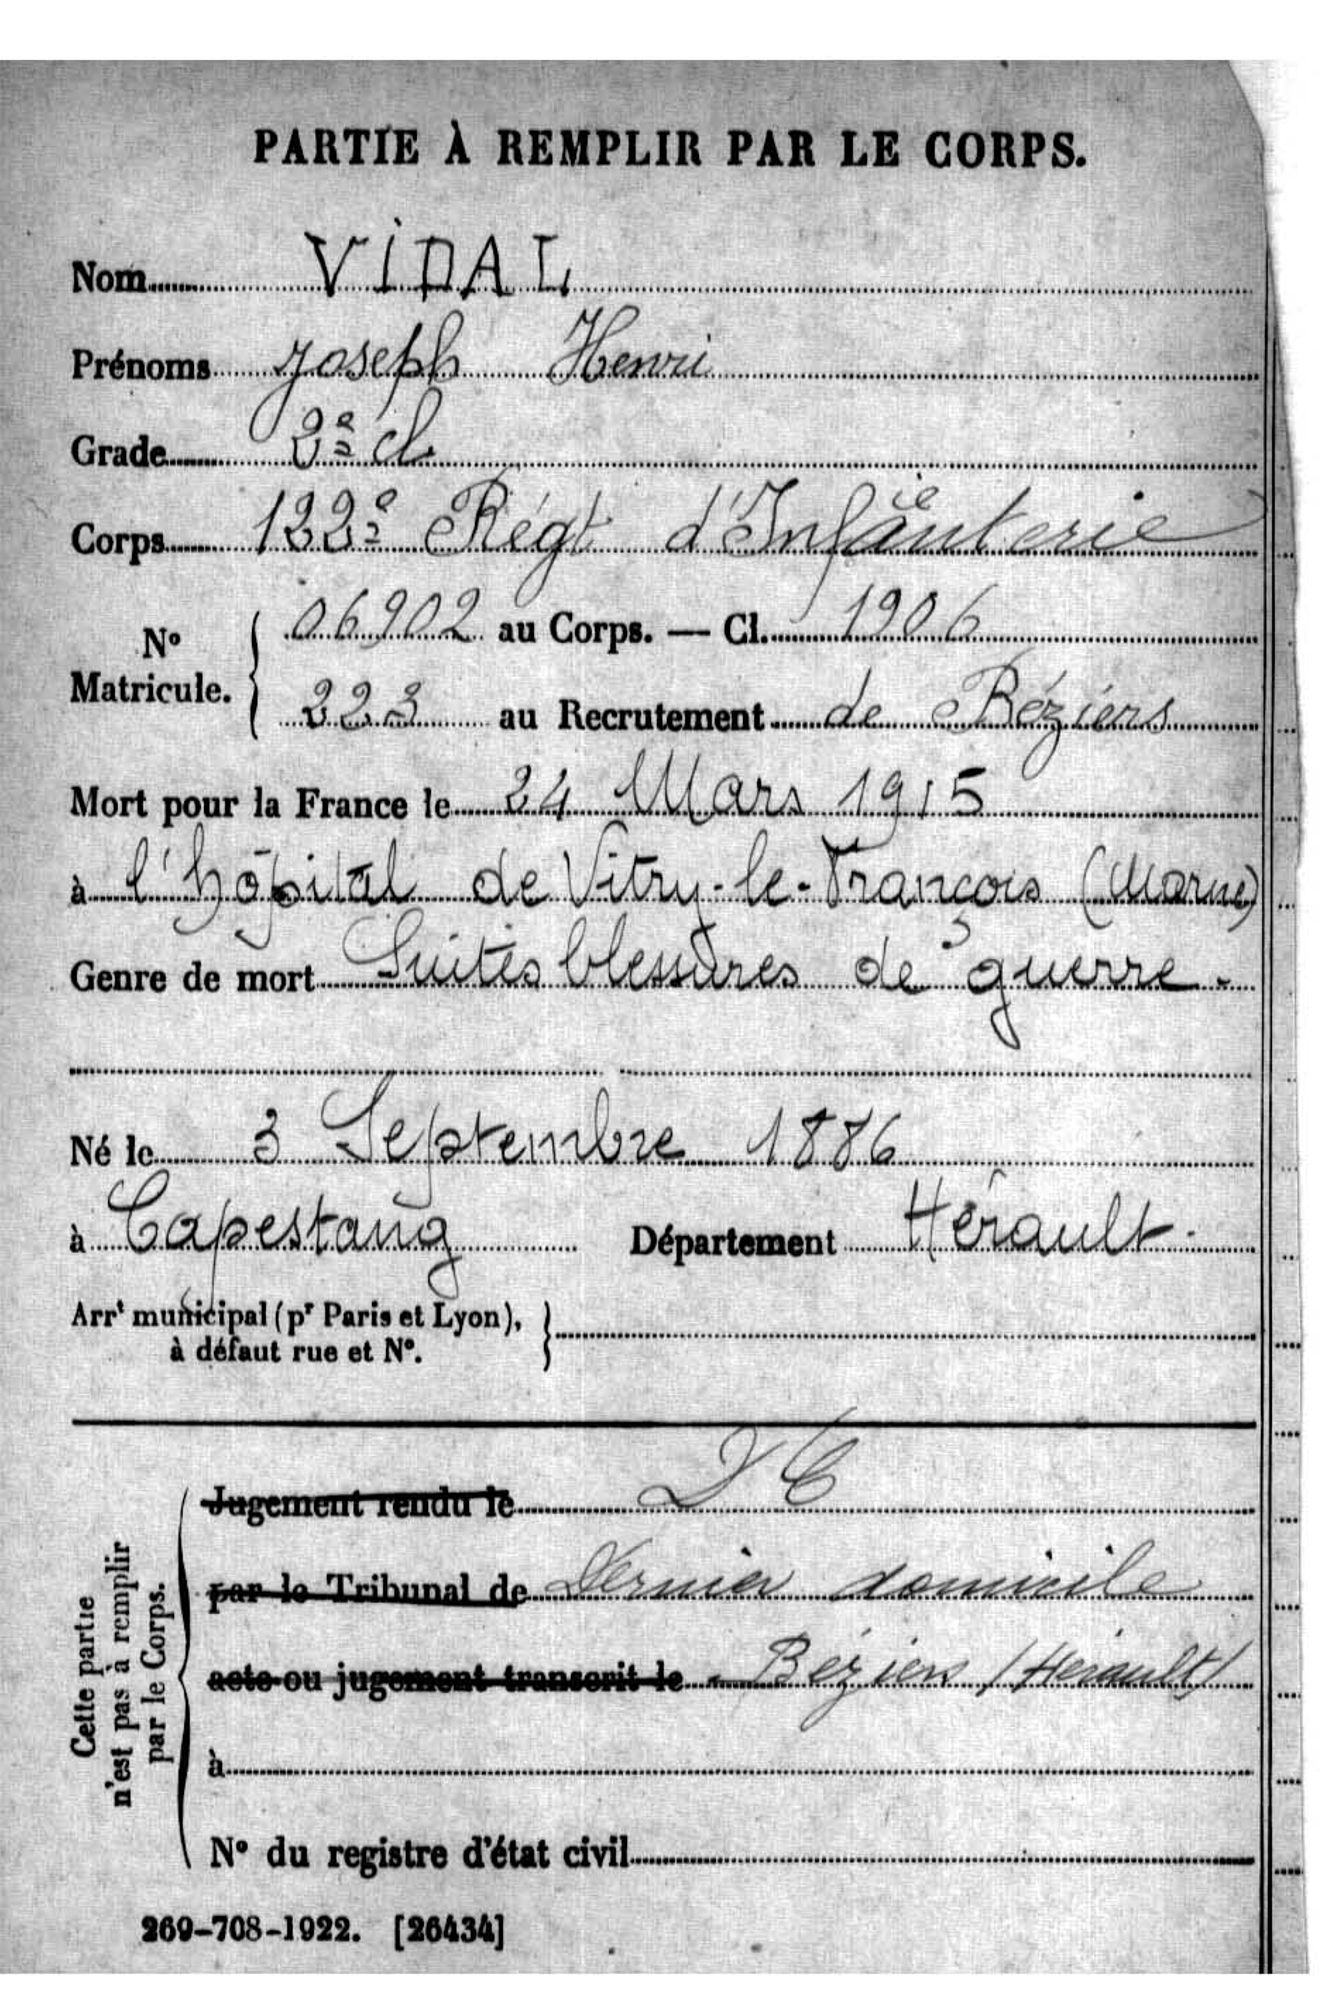 PARTIE À REMPLIR PAR LE CORPS.
Nom VIDAL
Prénoms Joseph Henri
Grade 2e cl.
Corps 122e Régt d'Infanterie
N° Matricule. 06902 au Corps. — Cl. 1906
223 au Recrutement de Béziers
Mort pour la France le 24 Mars 1915
à l'hôpital de Vitry-le-François (Marne)
Genre de mort Suites blessures de guerre.
Né le 3 Septembre 1886
à Capestang Département Hérault.
Arrt municipal (pr Paris et Lyon),
à défaut rue et N°.
Cette partie n'est pas à remplir par le Corps.
Jugement rendu le
par le Tribunal de Dernier domicile
acte ou jugement transcrit le Béziers (Hérault)
à
N° du registre d'état civil
269-708-1922. [26434]